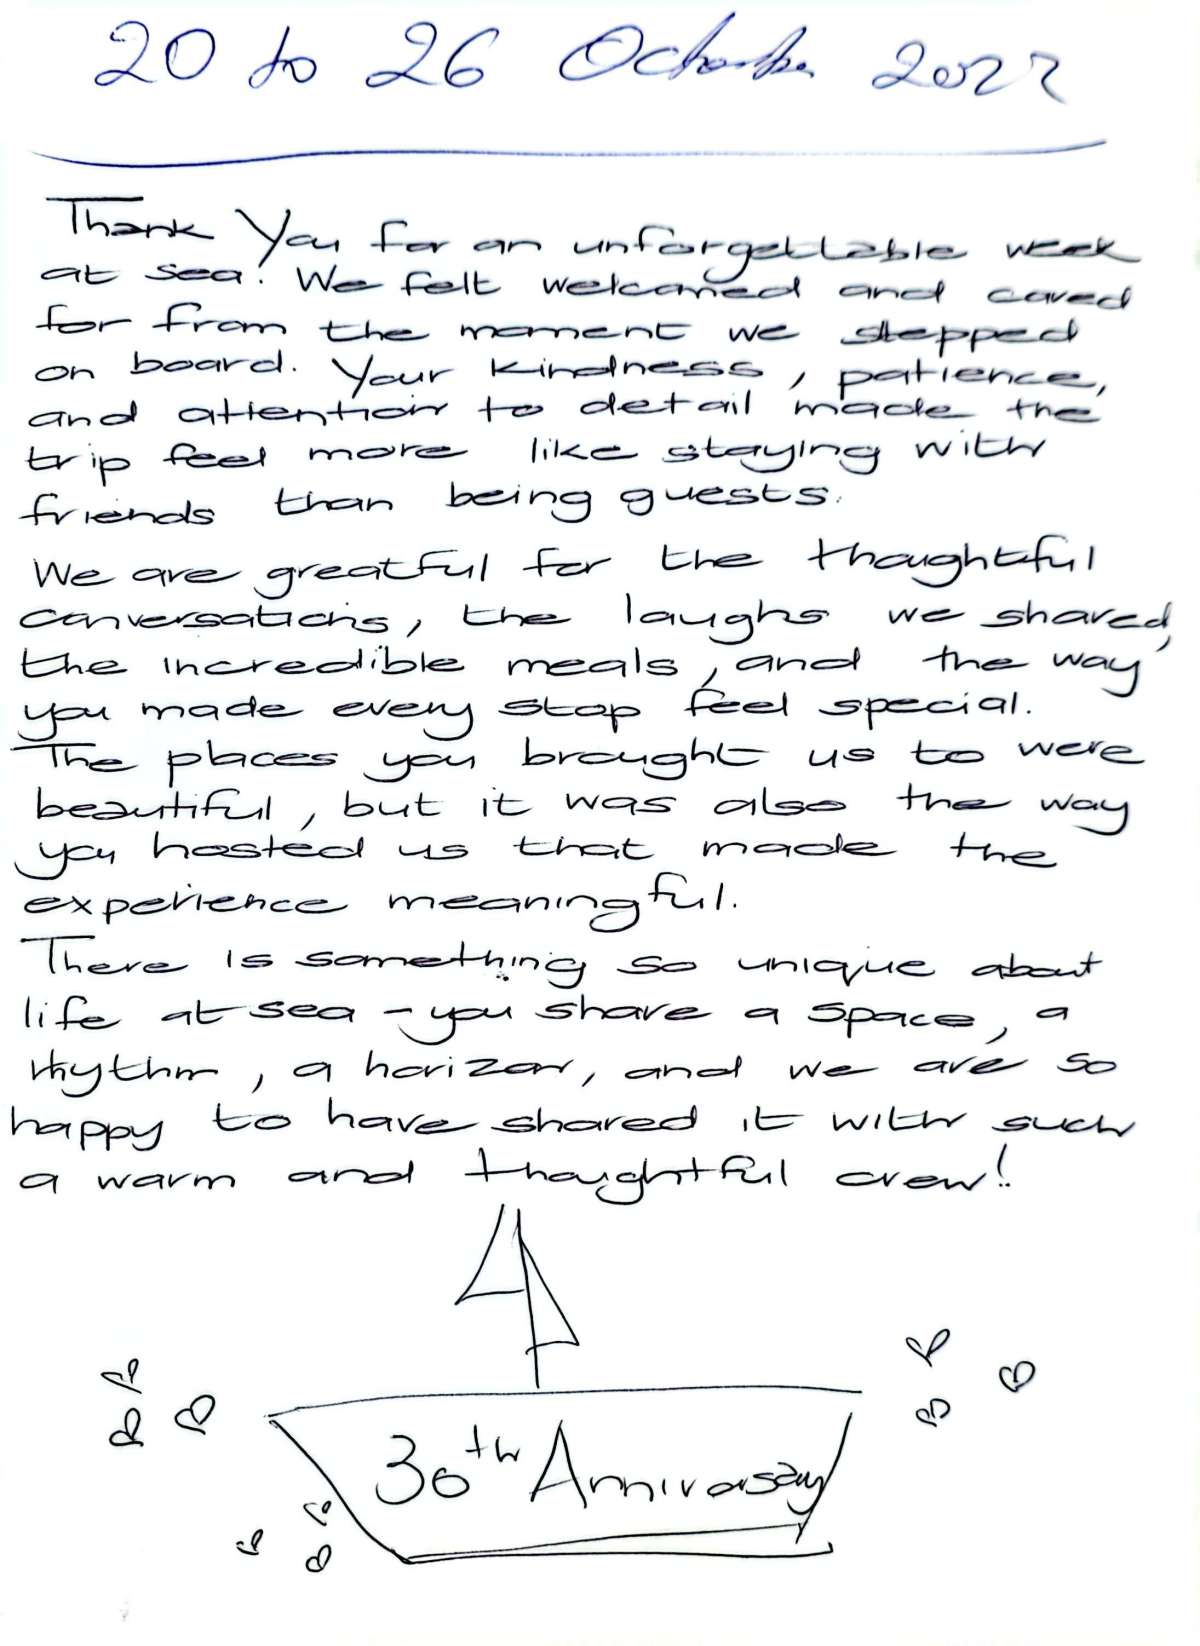 20 to 26 October 2022
Thank You for an unforgettable week
at sea! We felt welcomed and cared
for from the moment we stepped
on board. Your kindness, patience,
and attention to detail made the
trip feel more like staying with
friends than being guests.
We are greatful for the thoughtful
conversations, the laughs we shared,
the incredible meals, and the way
you made every stop feel special.
The places you brought us to were
beautiful, but it was also the way
you hosted us that made the
experience meaningful.
There is something so unique about
life at sea - you share a space, a
rhythm, a horizon, and we are so
happy to have shared it with such
a warm and thoughtful crew!
30th Anniversary